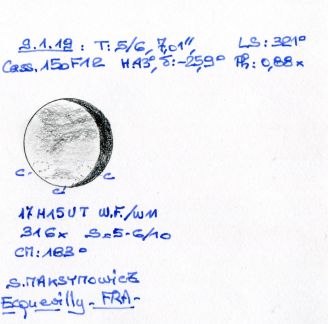 9.1.12 : T: 5/6, 7,01", LS: 321°
Cass. 150F12 HA3°, δ: -25,9° Ph: 0,88x
C- C
C
17H15UT W.F./W11
316x S=5-6/10
CM: 183°
S. MAKSYMOWICZ
Ecquevilly - FRA -